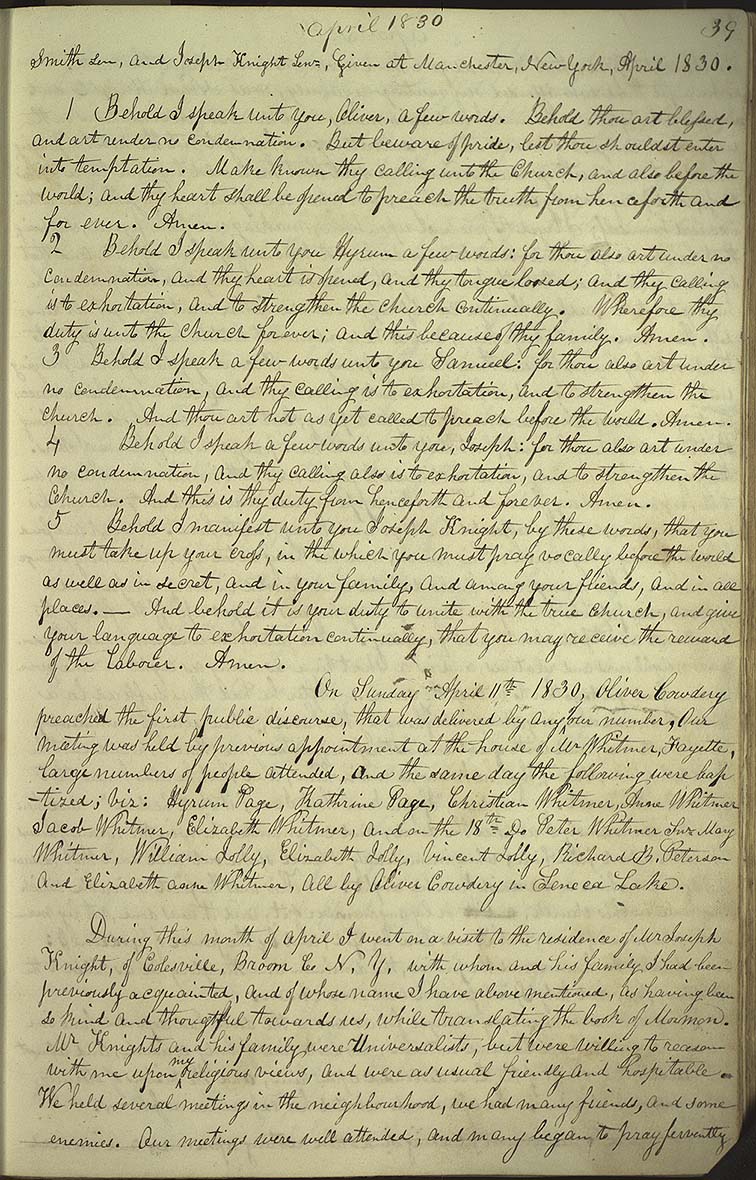 April 1830
39
Smith Sen, and Joseph Knight Senr, Given at Manchester, New York, April 1830.
1 Behold I speak unto you, Oliver, a few words. Behold thou art blessed,
and art under no condemnation. But beware of pride, lest thou shouldst enter
into temptation. Make known thy calling unto the Church, and also before the
world; and thy heart shall be opened to preach the truth from henceforth and
for ever. Amen.
2 Behold I speak unto you Hyrum a few words: for thou also art under no
condemnation, and thy heart is opened, and thy tongue loosed; and thy calling
is to exhortation, and to strengthen the church continually. Wherefore thy
duty is unto the church forever; and this because of thy family. Amen.
3 Behold I speak a few words unto you Samuel: for thou also art under
no condemnation, and thy calling is to exhortation, and to strengthen the
Church. And thou art not as yet called to preach before the world. Amen.
4 Behold I speak a few words unto you, Joseph: for thou also art under
no condemnation, and thy calling also is to exhortation, and to strengthen the
Church. And this is thy duty from henceforth and forever. Amen.
5 Behold I manifest unto you Joseph Knight, by these words, that you
must take up your cross, in the which you must pray vocally before the world
as well as in secret, and in your family, and among your friends, and in all
places. — And behold it is your duty to unite with the true church, and give
your language to exhortation continually, that you may receive the reward
of the Laborer. Amen.
On Sunday April 11th 1830, Oliver Cowdery
preached the first public discourse, that was delivered by any our number, Our
meeting was held by previous appointment at the house of Mr Whitmer, Fayette,
large numbers of people attended, and the same day the following were bap
-tized; viz: Hyrum Page, Kathrine Page, Christian Whitmer, Anne Whitmer
Jacob Whitmer, Elizabeth Whitmer, and on the 18th Do Peter Whitmer Senr Mary
Whitmer, William Jolly, Elizabeth Jolly, Vincent Jolly, Richard B. Peterson
and Elizabeth anne Whitmer, All by Oliver Cowdery in Seneca Lake.
During this month of april I went on a visit to the residence of Mr Joseph
Knight, of Colesville, Broom Co N, Y, with whom and his family I had been
previously acquainted, and of whose name I have above mentioned, as having been
so kind and thoughtful towards us, while translating the book of Mormon.
Mr Knights and his family were Universalists, but were willing to reason
with me upon my religious views, and were as usual friendly and hospitable.
We held several meetings in the neighbourhood, we had many friends, and some
enemies. Our meetings were well attended, and many began to pray fervently